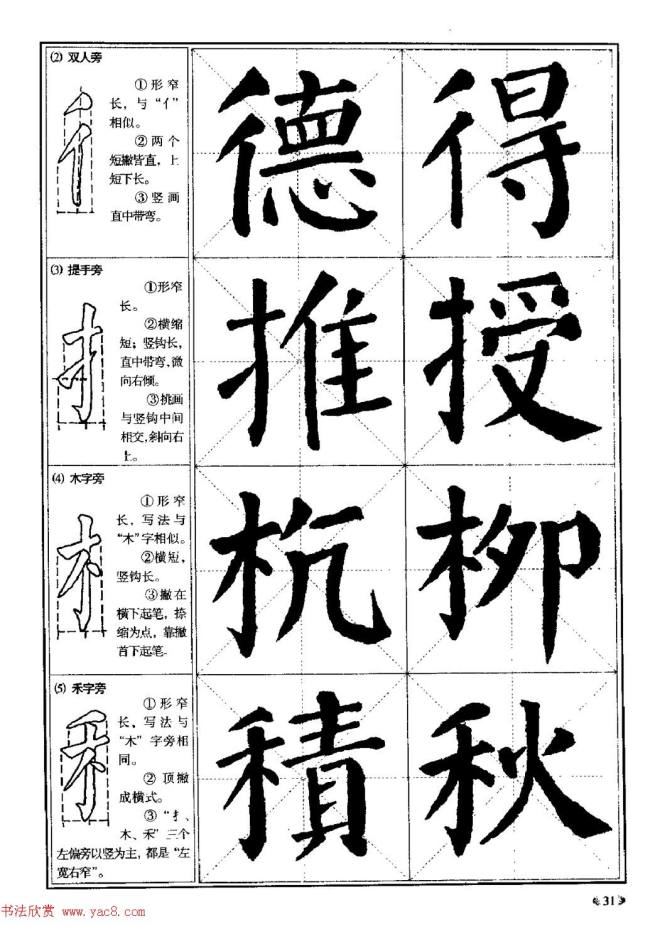 (2) 双人旁
①形窄
长，与“亻”
相似。
②两个
短撇皆直，上
短下长。
③竖画
直中带弯。
德得
(3) 提手旁
①形窄
长。
②横缩
短；竖钩长，
直中带弯，微
向右倾。
③挑画
与竖钩中间
相交，斜向右
上。
推授
(4) 木字旁
①形窄
长，写法与
“木”字相似。
②横短，
竖钩长。
③撇在
横下起笔，捺
缩为点，靠撇
首下起笔。
杭柳
(5) 禾字旁
①形窄
长，写法与
“木”字旁相
同。
②顶撇
成横式。
③“扌、
木、禾”三个
左偏旁以竖为主，都是“左
宽右窄”。
積秋
31
书法欣赏 www.yac8.com